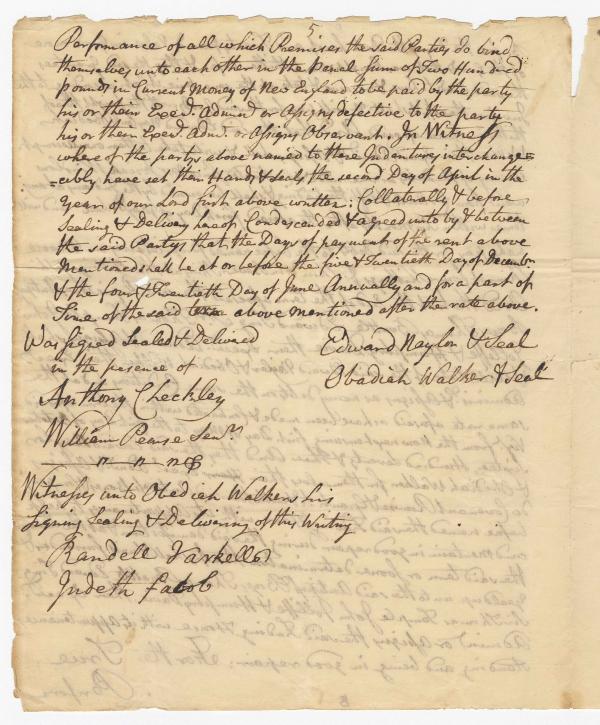 5
Performance of all which Premises the said Parties do bind
themselves unto each other in the Penal Sum of Two Hundred
pounds in Current Money of New England to be paid by the party
his or their Exec.r Admin.r or Assigns defective to the party
his or their Exec.r Adm.r or Assigns Observant. In Witness
where of the partys above named to these Indentures interchange=
=ably have set their Hands & Seals the second Day of April in the
Year of our Lord first above written: Collaterally & before
Sealing & Delivery hereof Condescended & agreed unto by & between
the said Partys that the Days of payment of the rent above
Mentioned shall be at or before the five & Twentieth Day of Decemb.r
& the four & Twentieth Day of June Annually and for a part of
Time of the said above mentioned after the rate above.
Was Signed Sealed & Delivered
in the presence of
Edward Naylor & Seal
Obadiah Walker & Seal
Anthony Checkley
William Pearse Sen.r
Witnesses unto Obediah Walkers his
Signing Sealing & Delivering of this Writing
Randell
Judeth Jacob